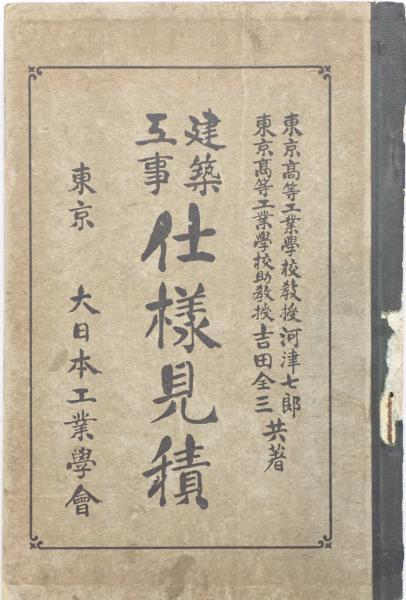 東京高等工業學校教授河津七郎
東京高等工業學校助教授吉田全三
共著
建築
工事
仕様見積
東京 大日本工業學會